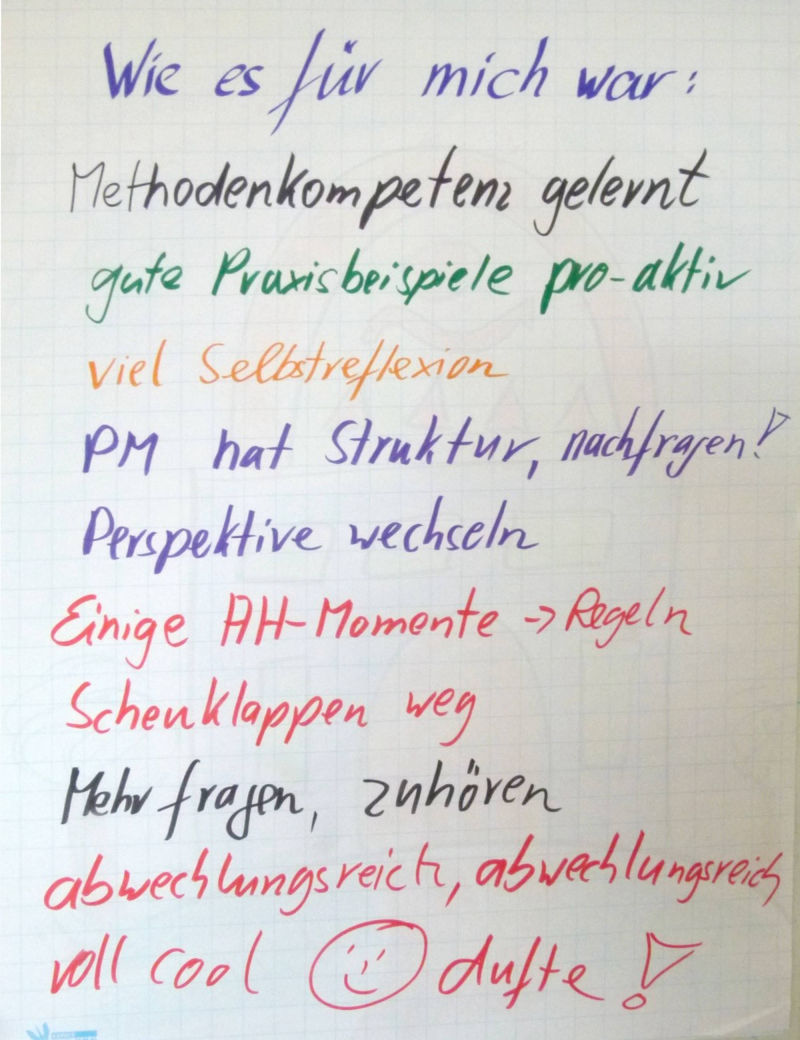 Wie es für mich war:
Methodenkompetenz gelernt
gute Praxisbeispiele pro-aktiv
viel Selbstreflexion
PM hat Struktur, nachfragen!
Perspektive wechseln
Einige AH-Momente → Regeln
Scheuklappen weg
Mehr fragen, zuhören
abwechlungsreich, abwechlungsreich
voll cool ☺ dufte!